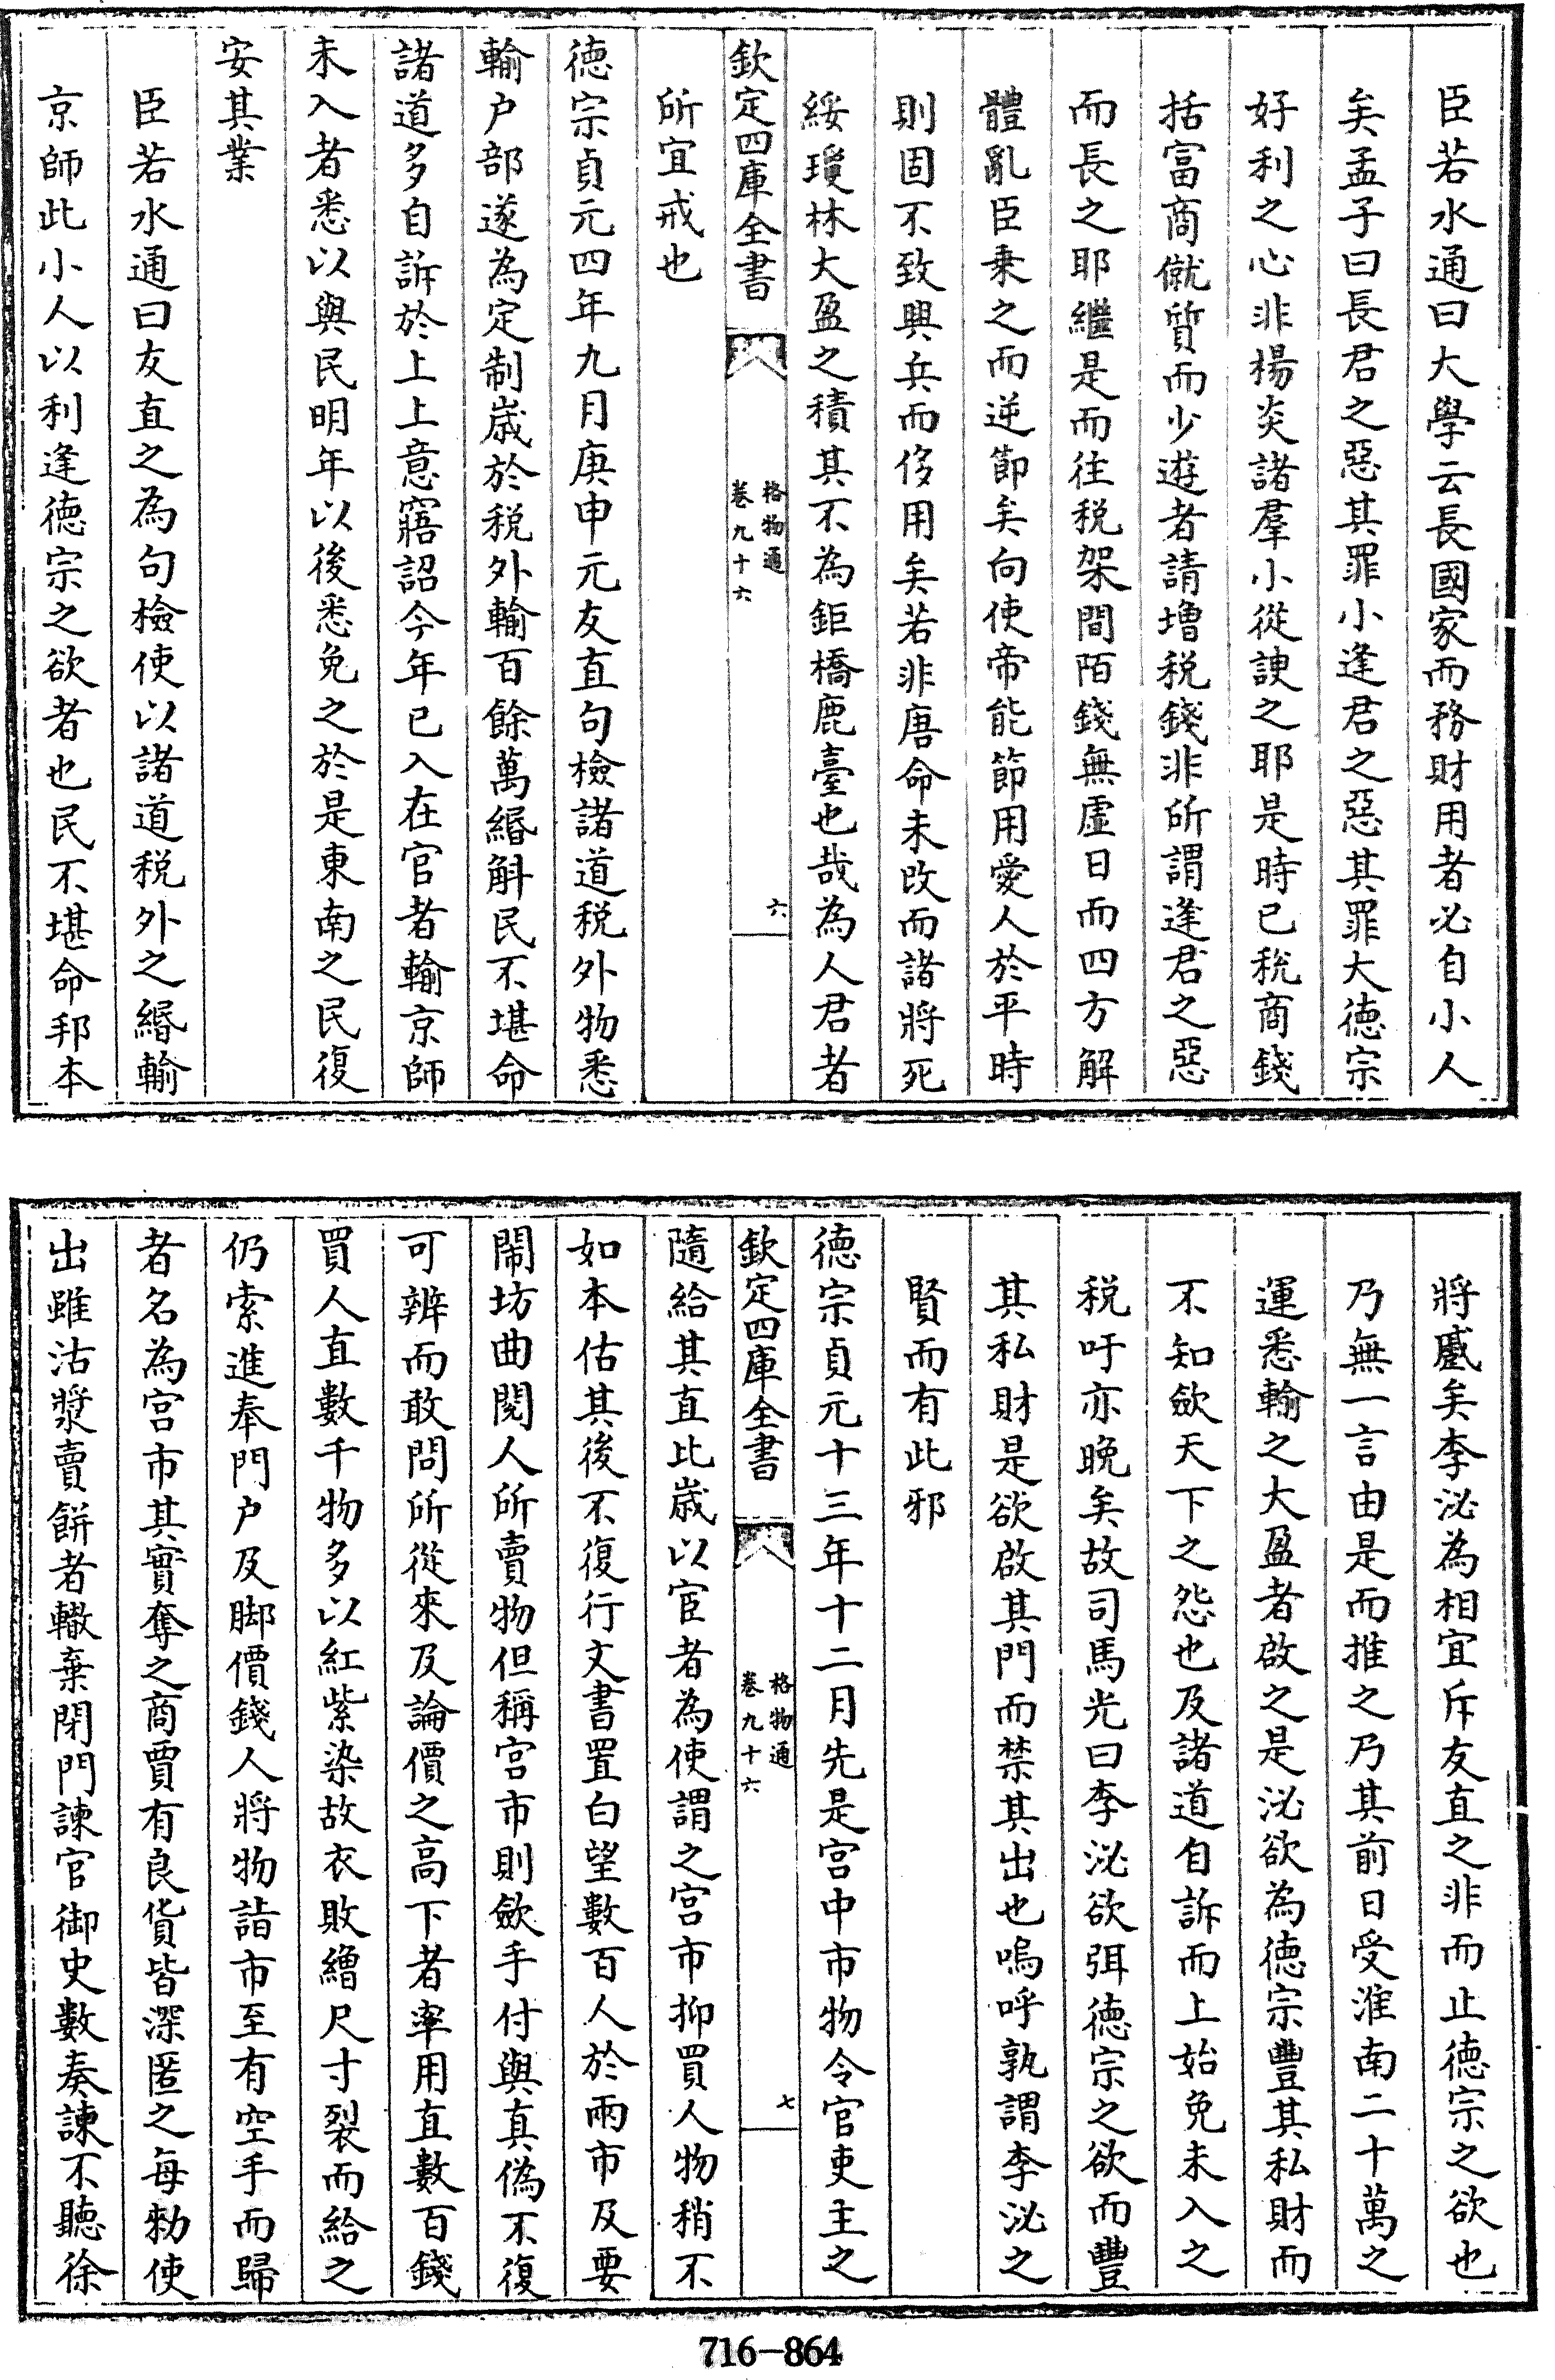 臣若水通曰大學云長國家而務財用者必自小人
矣孟子曰長君之惡其罪小逢君之惡其罪大德宗
好利之心非楊炎諸羣小從諛之耶是時已稅商錢
括富商僦質而少遊者請增稅錢非所謂逢君之惡
而長之耶繼是而往稅架間陌錢無虛日而四方解
體亂臣乗之而逆節矣向使帝能節用愛人於平時
則固不致興兵而侈用矣若非唐命未改而諸將死
綏瓊林大盈之積其不為鉅橋鹿臺也哉為人君者
欽定四庫全書
格物通
卷九十六
六
所宜戒也
德宗貞元四年九月庚申元友直句檢諸道稅外物悉
輸户部遂為定制歲於稅外輸百餘萬緡斛民不堪命
諸道多自訴於上上意寤詔今年已入在官者輸京師
未入者悉以與民明年以後悉免之於是東南之民復
安其業
臣若水通曰友直之為句檢使以諸道稅外之緡輸
京師此小人以利逢德宗之欲者也民不堪命邦本
將蹙矣李泌為相宜斥友直之非而止德宗之欲也
乃無一言由是而推之乃其前日受淮南二十萬之
運悉輸之大盈者啟之是泌欲為德宗豐其私財而
不知斂天下之怨也及諸道自訴而上始免未入之
税吁亦晚矣故司馬光曰李泌欲弭德宗之欲而豐
其私財是欲啟其門而禁其出也嗚呼孰謂李泌之
賢而有此邪
德宗貞元十三年十二月先是宮中市物令官吏主之
欽定四庫全書
格物通
卷九十六
七
隨給其直比歲以宦者為使謂之宮市抑買人物稍不
如本估其後不復行文書置白望數百人於兩市及要
鬧坊曲閱人所賣物但稱宮市則斂手付與真偽不復
可辨而敢問所從來及論價之高下者率用直數百錢
買人直數千物多以紅紫染故衣敗繒尺寸裂而給之
仍索進奉門户及脚價錢人將物詣市至有空手而歸
者名為宮市其實奪之商賈有良貨皆深匿之每勑使
出雖沽漿賣餅者輙棄閉門諫官御史數奏諫不聽徐
716-864